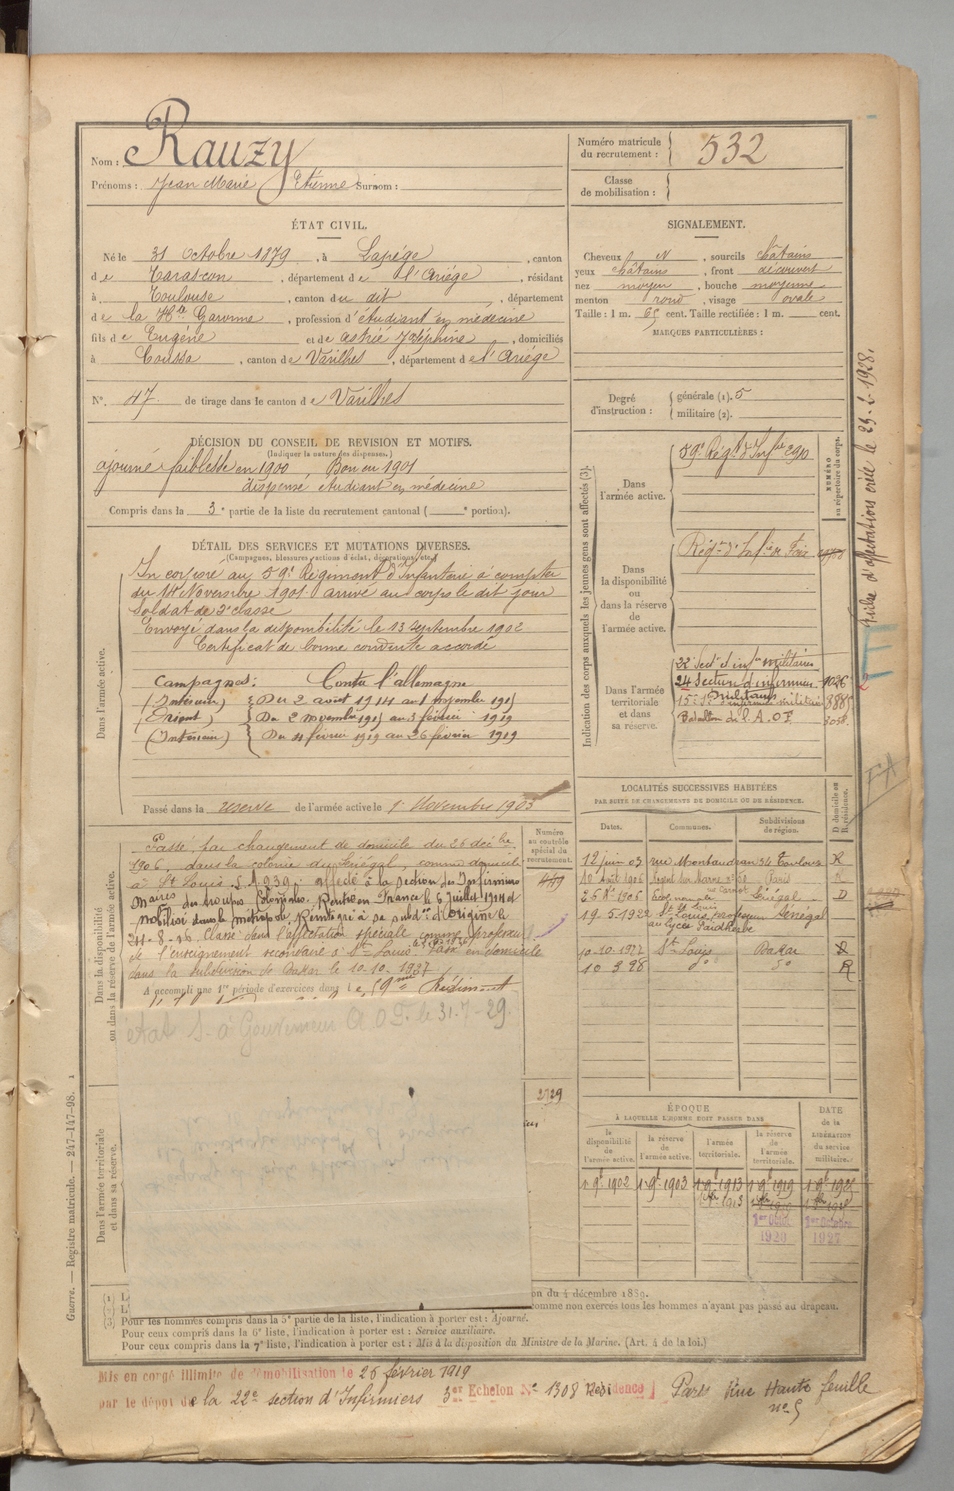 Nom : Rauzy
Prénoms : Jean Marie Etienne Surnom :
Numéro matricule du recrutement : 532
Classe de mobilisation :
ÉTAT CIVIL.
Né le 31 Octobre 1879, à Lapége, canton
de Tarascon, département de l'Ariége, résidant
à Toulouse, canton du dit, département
de la Hte Garonne, profession d'étudiant en médecine
fils de Eugène et de Astrié Joséphine, domiciliés
à Coussa, canton de Varilhes, département de l'Ariége
N° 47 de tirage dans le canton de Varilhes
SIGNALEMENT.
Cheveux N, sourcils châtains
yeux châtains, front découvert
nez moyen, bouche moyenne
menton rond, visage ovale
Taille : 1 m. 65 cent. Taille rectifiée : 1 m. cent.
MARQUES PARTICULIÈRES :
Degré d'instruction : générale (1). 5
militaire (2).
DÉCISION DU CONSEIL DE REVISION ET MOTIFS.
(Indiquer la nature des dispenses.)
ajourné faiblesse en 1900, Bon en 1901
dispensé étudiant en médecine
Compris dans la 3e partie de la liste du recrutement cantonal ( e portion).
DÉTAIL DES SERVICES ET MUTATIONS DIVERSES.
(Campagnes, blessures, actions d'éclat, décorations, etc.)
Dans l'armée active.
Incorporé au 59e Régiment d'Infanterie à compter
du 14 Novembre 1901. arrivé au corps le dit jour
Soldat de 2e classe
Envoyé dans la disponibilité le 13 Septembre 1902
Certificat de bonne conduite accordé
Campagnes : Contre l'allemagne
(Intérieur) Du 2 aout 1914 au 1 novembre 1915
(Orient) Du 2 novembre 1915 au 3 février 1919
(Intérieur) Du 4 février 1919 au 26 février 1919
Passé dans la réserve de l'armée active le 1er Novembre 1903
Indication des corps auxquels les jeunes gens sont affectés (3).
NUMÉRO au répertoire du corps.
Dans l'armée active.
59e Régt d'Infie
Dans la disponibilité ou dans la réserve de l'armée active.
Régt d'Infie de Foix
Dans l'armée territoriale et dans sa réserve.
22e Sect d'infers militaires
24 Section d'infirmiers militaires 1026
15e infirmiers militaires
Bataillon de l'A.O.F. 3058
Dans la disponibilité ou dans la réserve de l'armée active.
Numéro au contrôle spécial du recrutement.
Passé par changement de domicile du 26 décbre
1906, dans la colonie du Sénégal, comme domicilié
à St Louis. S.A. 939. affecté à la section de Infirmiers
des troupes Coloniales. Rentré en France le 6 juillet 1914 et
mobilisé dans la métropole, Réintégré à sa subdon d'origine le
24-8-16. Classé dans l'affectation spéciale comme professeur
de l'enseignement secondaire à St Louis. Passé en domicile
dans la subdivision de Dakar le 10.10.1927
A accompli une 1re période d'exercices dans le 59me Régiment
état S. à Gouverneur A.O.F. le 31.7-29.
Dans l'armée territoriale et dans sa réserve.
2129
LOCALITÉS SUCCESSIVES HABITÉES
PAR SUITE DE CHANGEMENTS DE DOMICILE OU DE RÉSIDENCE.
Dates. Communes. Subdivisions de région. D domicile ou R résidence.
12 juin 03 rue Montaudran 34 Toulouse R
12 Août 1906 Nogent sur Marne Paris R
26 8bre 1906 Ecole normale Sénégal D
19.5.1922 St Louis, professeur au lycée Faidherbe Sénégal
10-10-1927 St Louis Dakar D
10 3 28 do do R
ÉPOQUE
À LAQUELLE L'HOMME DOIT PASSER DANS
la disponibilité de l'armée active. la réserve de l'armée active. l'armée territoriale. la réserve de l'armée territoriale. DATE de la LIBÉRATION du service militaire.
1 9bre 1902 1 9bre 1903 1 9bre 1913 1 9bre 1919 1 9bre 1925
1er Octo. 1920 1er Octobre 1927
on du 4 décembre 1889.
comme non exercés tous les hommes n'ayant pas passé au drapeau.
(3) Pour les hommes compris dans la 5e partie de la liste, l'indication à porter est : Ajourné.
Pour ceux compris dans la 6e liste, l'indication à porter est : Service auxiliaire.
Pour ceux compris dans la 7e liste, l'indication à porter est : Mis à la disposition du Ministre de la Marine. (Art. 4 de la loi.)
Guerre. — Registre matricule. — 247-147-98.
Mis en congé illimité de démobilisation le 26 février 1919
par le dépôt de la 22e section d'Infirmiers 3er Echelon N° 1308 Résidence Paris Rue Hautefeuille
n° 5
Fiche d'affectation créée le 29.2.1928.